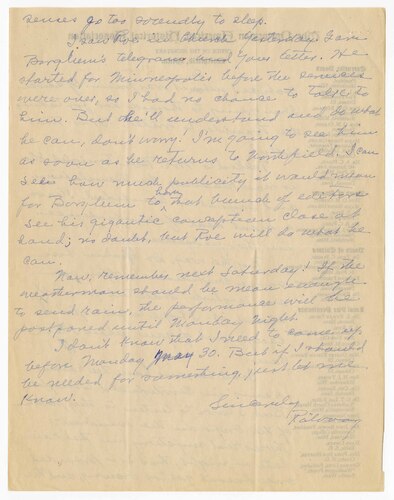 senses go too soundly to sleep.
I saw Roe at Church yesterday. Gave
Borglum's telegram and your letter. He
started for Minneapolis before the services
were over, so I had no chance to talk to
him. But he'll understand and do what
he can, don't worry! I'm going to see him
as soon as he returns to Northfield. I can
see how much publicity it would mean
for Borglum to have that bunch of editors
see his gigantic conception close at
hand; no doubt, but Roe will do what he
can.
Now, remember next Saturday! If the
weatherman should be mean enough
to send rain, the performance will be
postponed until Monday night.
I don't know that I need to come up
before Monday May 30. But if I should
be needed for something, just let me
know.
Sincerely